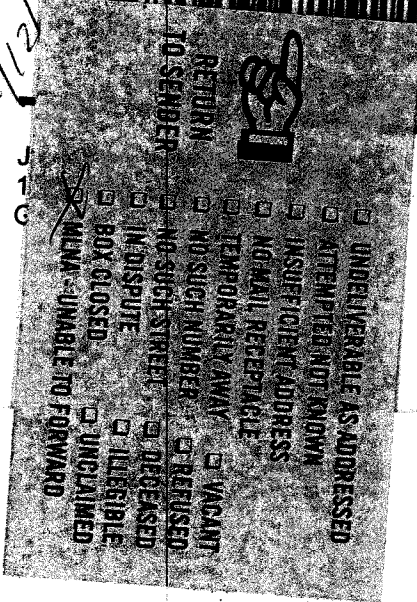 RETURN
TO SENDER
☐ UNDELIVERABLE AS ADDRESSED
☐ ATTEMPTED NOT KNOWN
☐ INSUFFICIENT ADDRESS
☐ NO MAIL RECEPTACLE
☐ TEMPORARILY AWAY ☐ VACANT
☐ NO SUCH NUMBER ☐ REFUSED
☐ NO SUCH STREET ☐ DECEASED
☐ IN DISPUTE ☐ ILLEGIBLE
☐ BOX CLOSED ☐ UNCLAIMED
☒ MLNA - UNABLE TO FORWARD